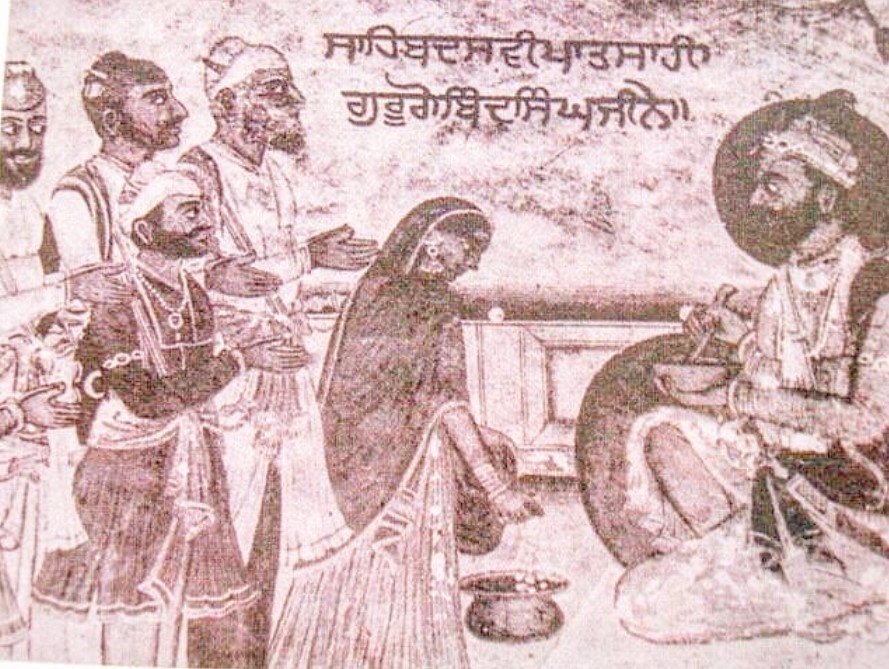 ਸਾਹਿਬਦਸਵੀਪਾਤਸਾਹੀ
ਗੁਰੂਗੋਬਿੰਦਸਿੰਘਜੀਨੇ॥